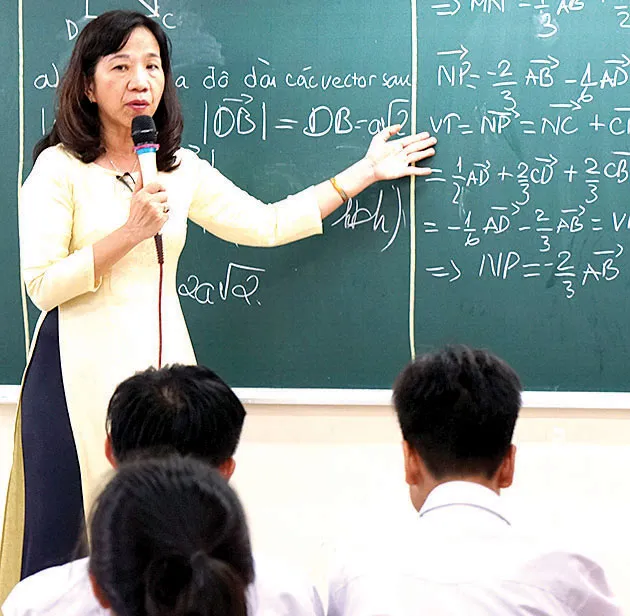 D C
a) a độ dài các vector sau
|DB| = DB = a√2
hbh)
2a√2.
=> MN = 1/3 AB +
NP = -2/3 AB - 1/6 AD
VT = NP = NC +
= 1/2 AD + 2/3 CD + 2/3 CB
= -1/6 AD - 2/3 AB = V
=> NP = -2/3 AB